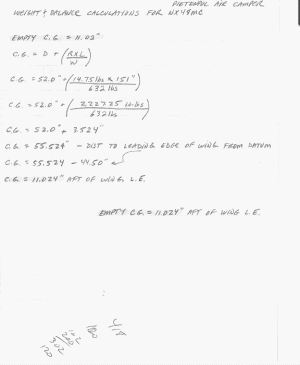 PIETENPOL AIR CAMPER
WEIGHT & BALANCE CALCULATIONS FOR NX48MC
EMPTY C.G. = 11.02"
C.G. = D + (RXL / W)
C.G. = 52.0" + (14.75 lbs x 151" / 632 lbs)
C.G. = 52.0" + (2,227.25 in-lbs / 632 lbs)
C.G. = 52.0" + 3.524"
C.G. = 55.524" - DIST TO LEADING EDGE OF WING FROM DATUM
C.G. = 55.524 - 44.50"
C.G. = 11.024" AFT OF WING L.E.
EMPTY C.G. = 11.024" AFT OF WING L.E.